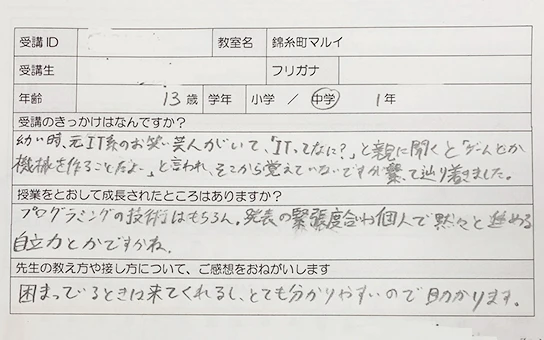 受講ID 教室名 錦糸町マルイ
受講生 フリガナ
年齢 13歳 学年 小学 / 中学 1年
受講のきっかけはなんですか?
幼い時、元IT系のお笑い芸人がいて、「ITってなに?」と親に聞くと「ゲームとか
機械を作ることだよー」と言われ、そこから覚えていないですが繋って辿り着きました。
授業をとおして成長されたところはありますか?
プログラミングの技術はもちろん。発表の緊張度合や個人で黙々と進める
自立力とかですかね。
先生の教え方や接し方について、ご感想をおねがいします
困まっているときは来てくれるし、とても分かりやすいので助かります。